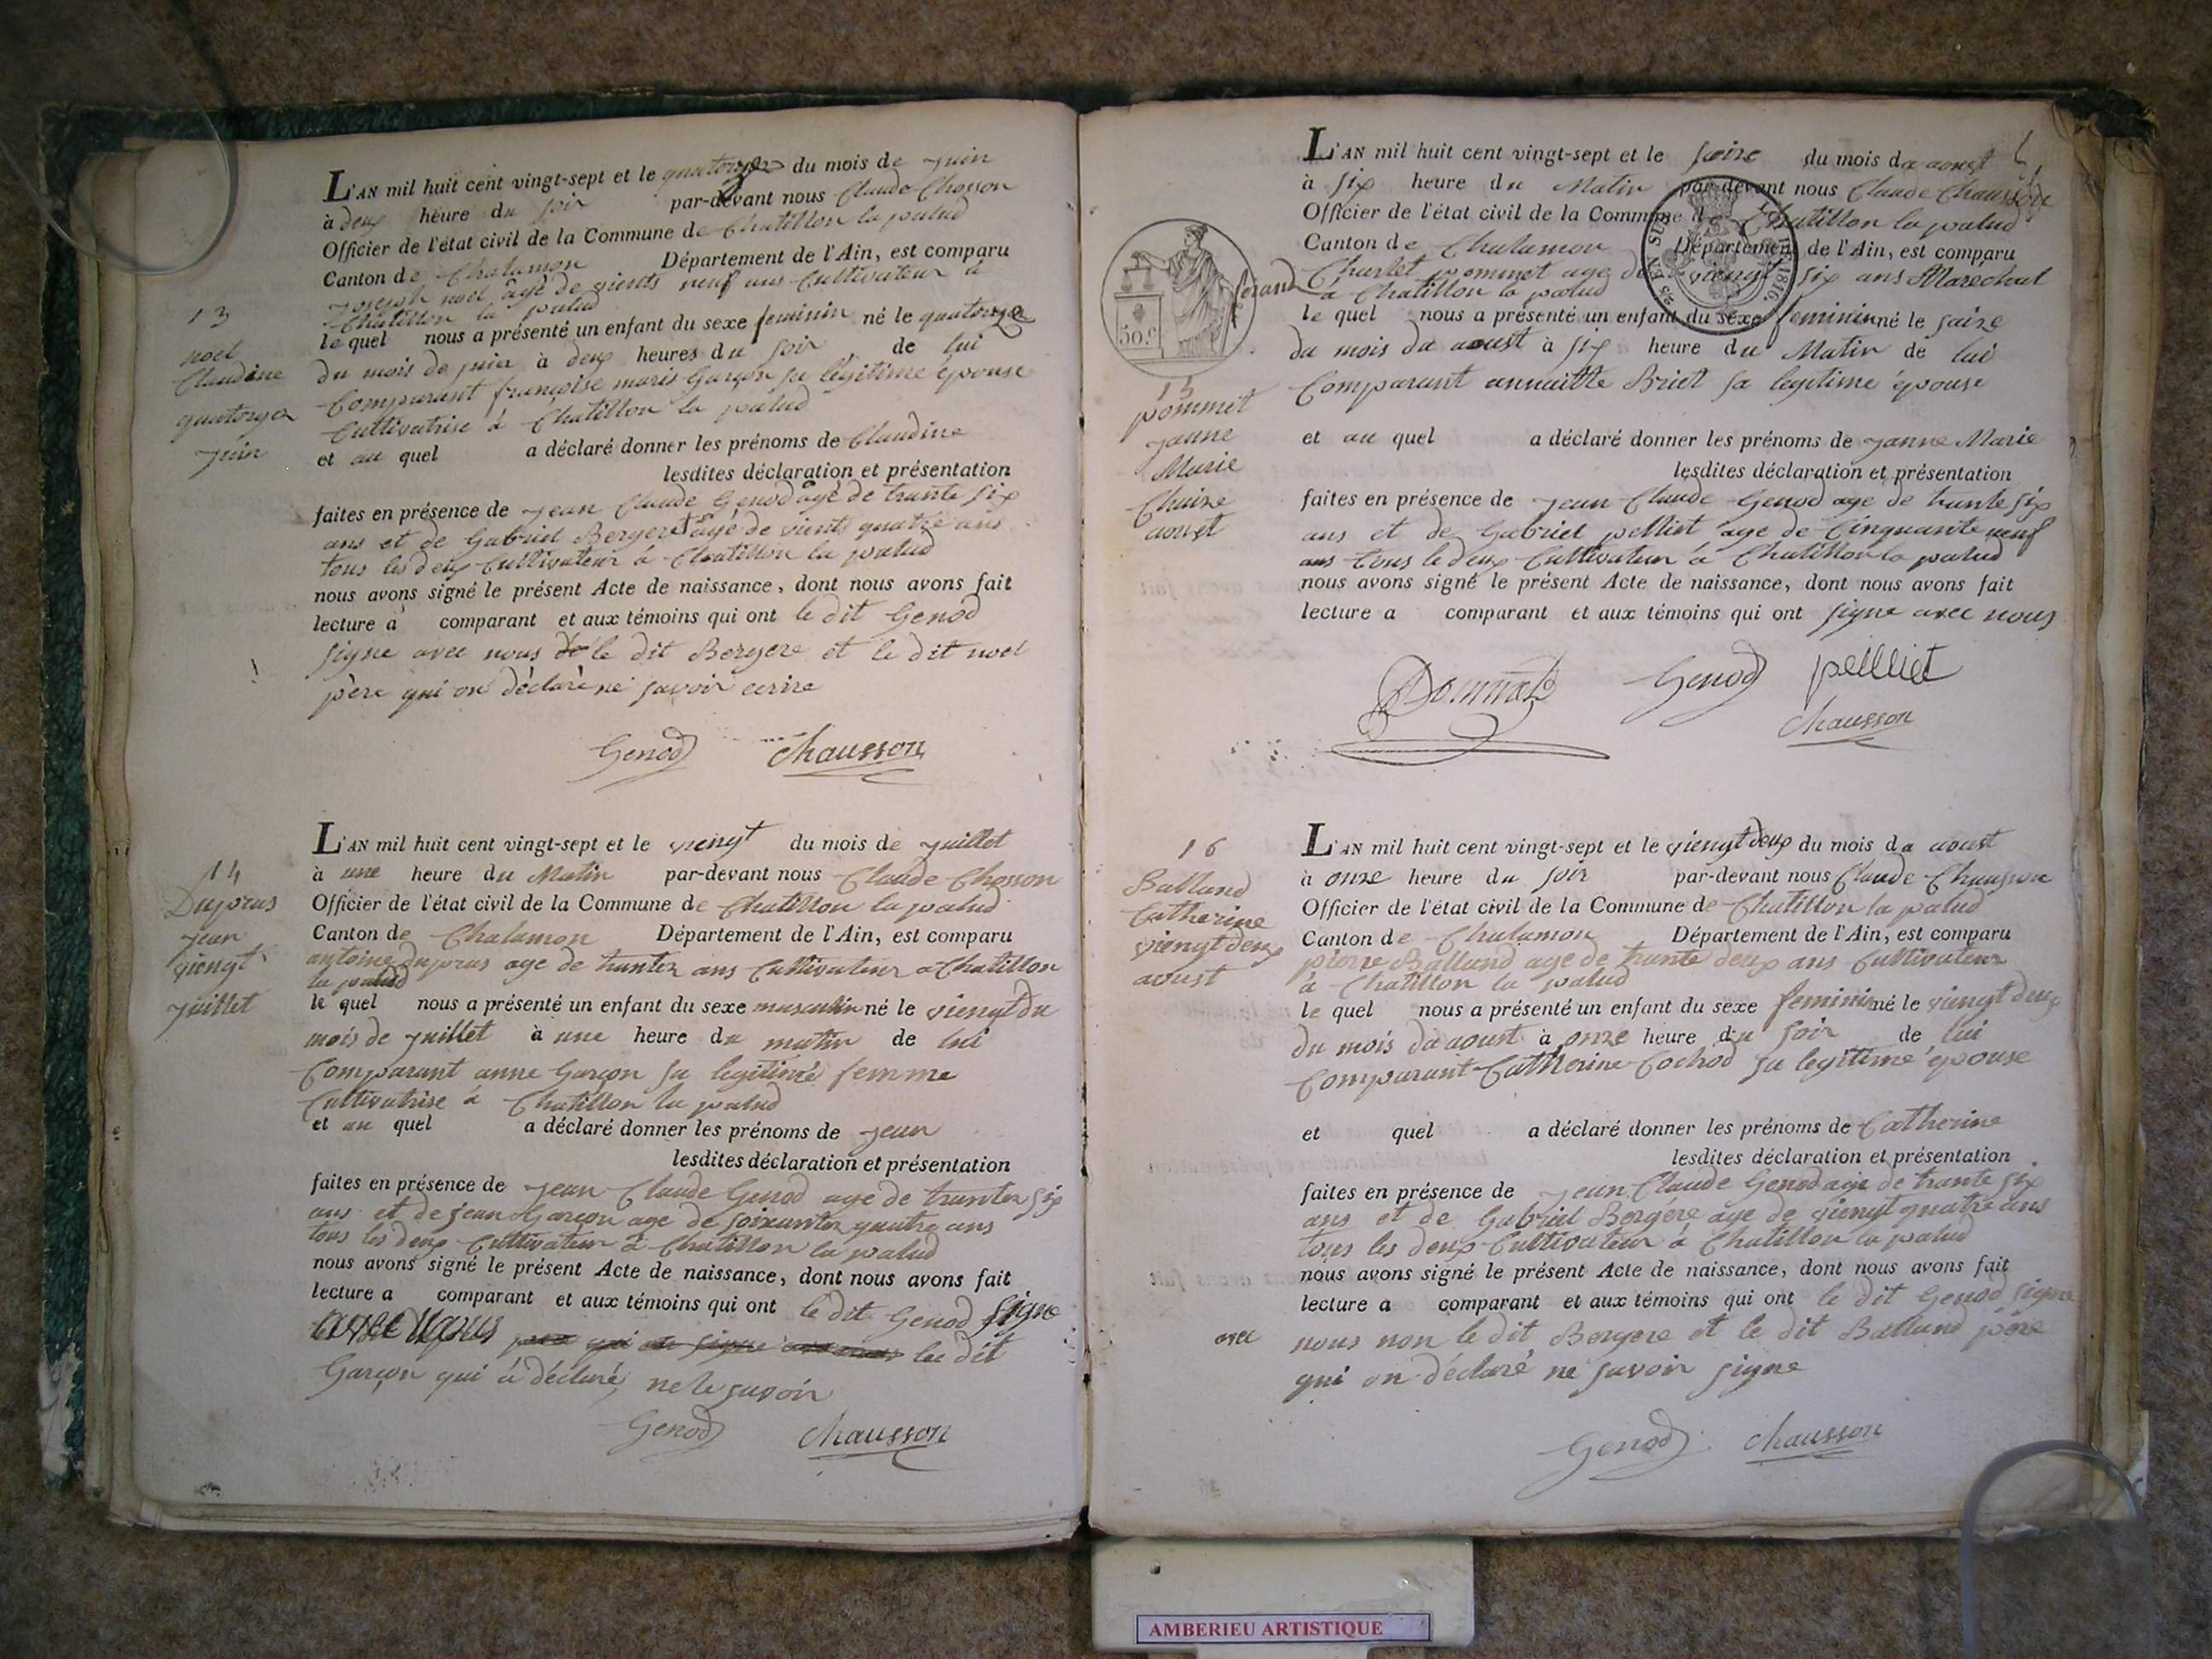 L'AN mil huit cent vingt-sept et le quatorze du mois de juin
à deux heure du soir par-devant nous Claude Chosson
Officier de l'état civil de la Commune de Chatillon la palud
Canton de Chalamon Département de l'Ain, est comparu
joseph noel âgé de vients neuf ans Cultivateur a
Chatillon la palud
13
le quel nous a présenté un enfant du sexe feminin né le quatorze
noel
Claudine
quatorze
juin
du mois de juin à deux heures du soir de lui
Comparant françoise marie Garçon sa légitime épouse
Cultivatrise à Chatillon la palud
et au quel a déclaré donner les prénoms de Claudine
lesdites déclaration et présentation
faites en présence de jean Claude Genod âgé de trante six
ans et de Gabriel Bergeret âgé de vients quatre ans
tous les deux Cultivateur à Chatillon la palud
nous avons signé le présent Acte de naissance, dont nous avons fait
lecture à comparant et aux témoins qui ont le dit Genod
signe avec nous le dit Bergere et le dit noel
père qui on déclaré ne savoir ecrire
Genod chausson
14
Dupras
jean
viengt
juillet
L'AN mil huit cent vingt-sept et le viengt du mois de juillet
à une heure du Matin par-devant nous Claude Chosson
Officier de l'état civil de la Commune de Chatillon la palud
Canton de Chalamon Département de l'Ain, est comparu
antoine Dupras age de trante ans Cultivateur a Chatillon
la palud
le quel nous a présenté un enfant du sexe masculin né le viengt du
mois de juillet à une heure du matin de lui
Comparant anne Garçon sa legitime femme
Cultivatrise à Chatillon la palud
et au quel a déclaré donner les prénoms de jean
lesdites déclaration et présentation
faites en présence de jean Claude Genod age de trante six
ans et de jean Garcon age de soixante quatre ans
tous les deux Cultivateur à Chatillon la palud
nous avons signé le présent Acte de naissance, dont nous avons fait
lecture a comparant et aux témoins qui ont le dit Genod signe
avec nous le dit
Garçon qui à déclaré ne le savoir
Genod chausson
L'AN mil huit cent vingt-sept et le saize du mois da aoust
à six heure du Matin par-devant nous Claude Chausson
Officier de l'état civil de la Commune de Chatillon la palud
Canton de Chalamon Département de l'Ain, est comparu
Charlet pommet age de viengt six ans Marechal
ferand à Chatillon la palud
EN SUS
1816
50.c
le quel nous a présenté un enfant du sexe feminin né le saize
du mois da aoust à six heure du Matin de lui
Comparant annaitte Briet sa legitime épouse
15
pommet
janne
Marie
Chaize
aoust
et au quel a déclaré donner les prénoms de janne Marie
lesdites déclaration et présentation
faites en présence de jean Claude Genod age de trante six
ans et de Gabriel pelliet age de Cinquante neuf
ans tous le deux Cultivateur à Chatillon la palud
nous avons signé le présent Acte de naissance, dont nous avons fait
lecture a comparant et aux témoins qui ont signe avec nous
Genod pelliet
chausson
16
Balland
Catherine
viengt deux
aoust
L'AN mil huit cent vingt-sept et le viengt deux du mois da aoust
à onze heure du soir par-devant nous Claude Chausson
Officier de l'état civil de la Commune de Chatillon la palud
Canton de Chalamon Département de l'Ain, est comparu
pierre Balland age de trante deux ans Cultivateur
à Chatillon la palud
le quel nous a présenté un enfant du sexe feminin né le viengt deux
du mois da aoust à onze heure du soir de lui
Comparant Catherine Cochod sa legitime épouse
et quel a déclaré donner les prénoms de Catherine
lesdites déclaration et présentation
faites en présence de jean Claude Genod age de trante six
ans et de Gabriel Bergere age de viengt quatre ans
tous les deux Cultivateur à Chatillon la palud
nous avons signé le présent Acte de naissance, dont nous avons fait
lecture a comparant et aux témoins qui ont le dit Genod signe
avec nous non le dit Bergere et le dit Balland père
qui on déclaré ne savoir signe
Genod chausson
AMBERIEU ARTISTIQUE